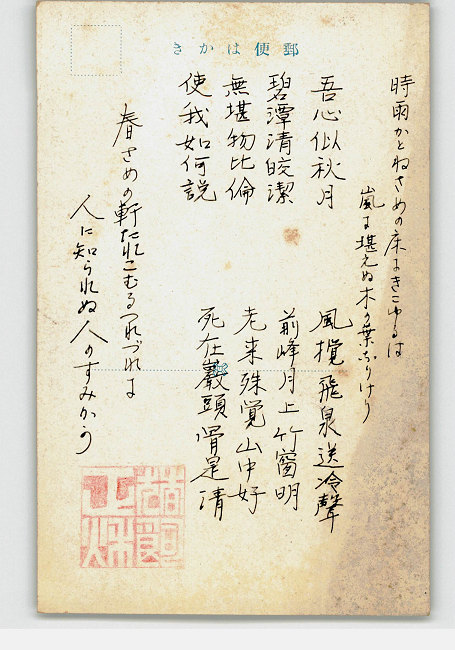 郵便はかき
時雨かとねさめの床にきこゆるは
嵐に堪えぬ木の葉なりけり
吾心似秋月
碧潭清皎潔
無堪物比倫
使我如何説
風攪飛泉送冷聲
前峰月上竹窗明
老来殊覚山中好
死在巌頭骨是清
春さめの軒たれこむるつれづれに
人に知られぬ人のすみかう